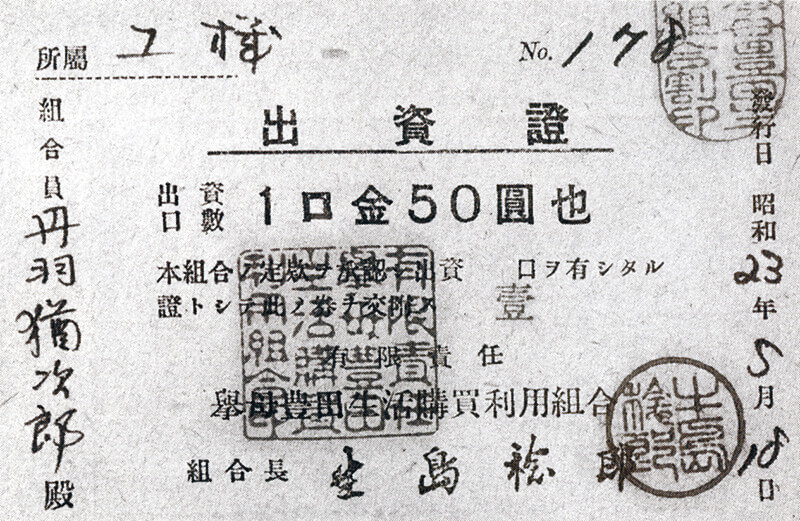 所屬 工機
No. 178
出資證
出資口數 1口金50圓也
本組合ノ定款ヲ承認シ出資壹口ヲ有シタル
證トシテ此ノ券ヲ交附ス
有限責任
擧母豊田生活購買利用組合
組合長 生島 郎
組合員 丹羽猶次郎殿
發行日 昭和23年5月18日